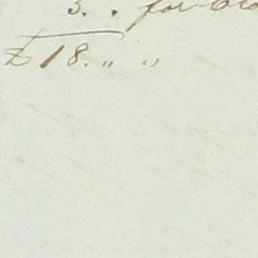 3. . for
£18. " "